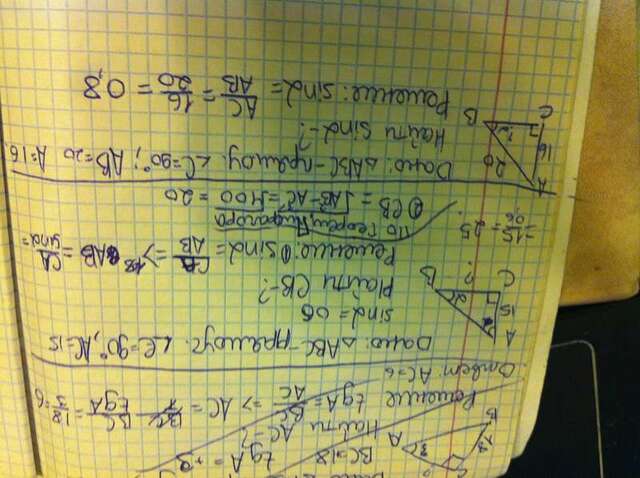 tg A = +3
BC=18
Найти AC-?
Решение
tg A = BC/AC => AC = BC/tgA = 18/3 = 6
Ответ AC=6
Дано: △ABC-прямоуг. ∠C=90°, AC=15
sin α = 06
Найти CB-?
Решение: sin α = CA/AB => AB = CA/sinα =
= 15/0,6 = 25.
По теореме Пифагора
CB = √AB²-AC² = √400 = 20
A
15
C
?
B
Дано: △ABC-прямоуг: ∠C=90°; AB=20 A=16.
Найти sin α-?
Решение: sin α = AC/AB = 16/20 = 0,8
A
16
20
C
B